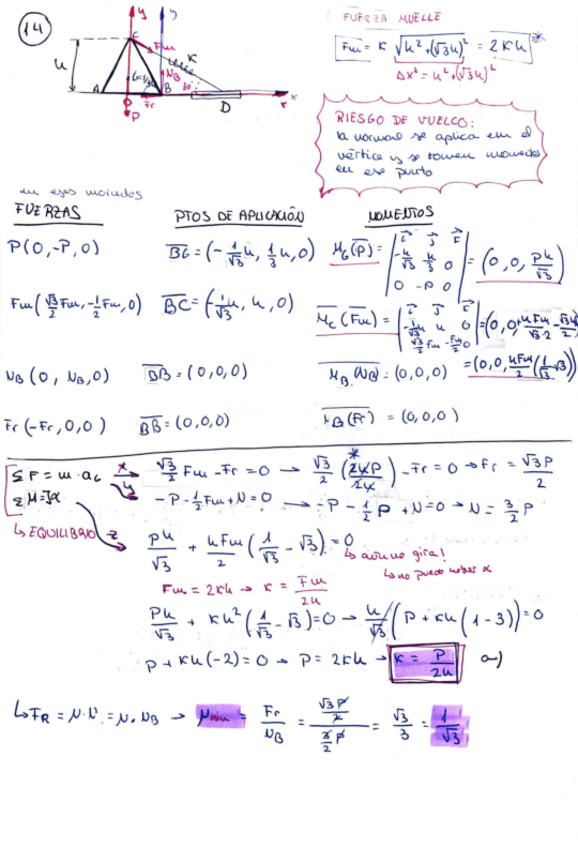 14
y
y
C
Fm
K
h
G=h/3
NB
30°
A
B
D
x
x
O
Fr
P
FUERZA MUELLE
Fm = K √h²+(√3h)² = 2Kh *
Δx² = h²+(√3h)²
RIESGO DE VUELCO:
la normal se aplica en el
vértice y se toman momentos
en ese punto
en ejes morados
FUERZAS
PTOS DE APLICACIÓN
MOMENTOS
P(0,-P,0)
BG = (-1/√3 h, 1/3 h, 0)
MG(P) = | i j k ; -h/√3 h/3 0 ; 0 -P 0 | = (0,0, Ph/√3)
Fm(√3/2 Fm, -1/2 Fm, 0)
BC = (-1/√3 h, h, 0)
MC(Fm) = | i j k ; -1/√3 h h 0 ; √3/2 Fm -Fm/2 0 | = (0,0, hFm/√3·2 - √3h/2)
= (0,0, hFm/2 (1/√3 - √3))
NB (0, NB, 0)
BB = (0,0,0)
MB(NB) = (0,0,0)
Fr (-Fr, 0, 0)
BB = (0,0,0)
MB(Fr) = (0,0,0)
ΣF = m·aG
x
√3/2 Fm - Fr = 0 → √3/2 (2hP/2h)* - Fr = 0 → Fr = √3P/2
ΣM = Iα
y
-P - 1/2 Fm + N = 0 → -P - 1/2 P + N = 0 → N = 3/2 P
↳ EQUILIBRIO
z
Ph/√3 + hFm/2 (1/√3 - √3) = 0
↳ aún no gira!
↳ no puedo haber α
Fm = 2Kh → K = Fm/2h
Ph/√3 + Kh² (1/√3 - √3) = 0 → h/√3 (P + Kh (1-3)) = 0
P + Kh (-2) = 0 → P = 2Kh → K = P/2h a)
↳ FR = μ·N = μ·NB → μmin = Fr/NB = (√3P/2)/(3/2 P) = √3/3 = 1/√3